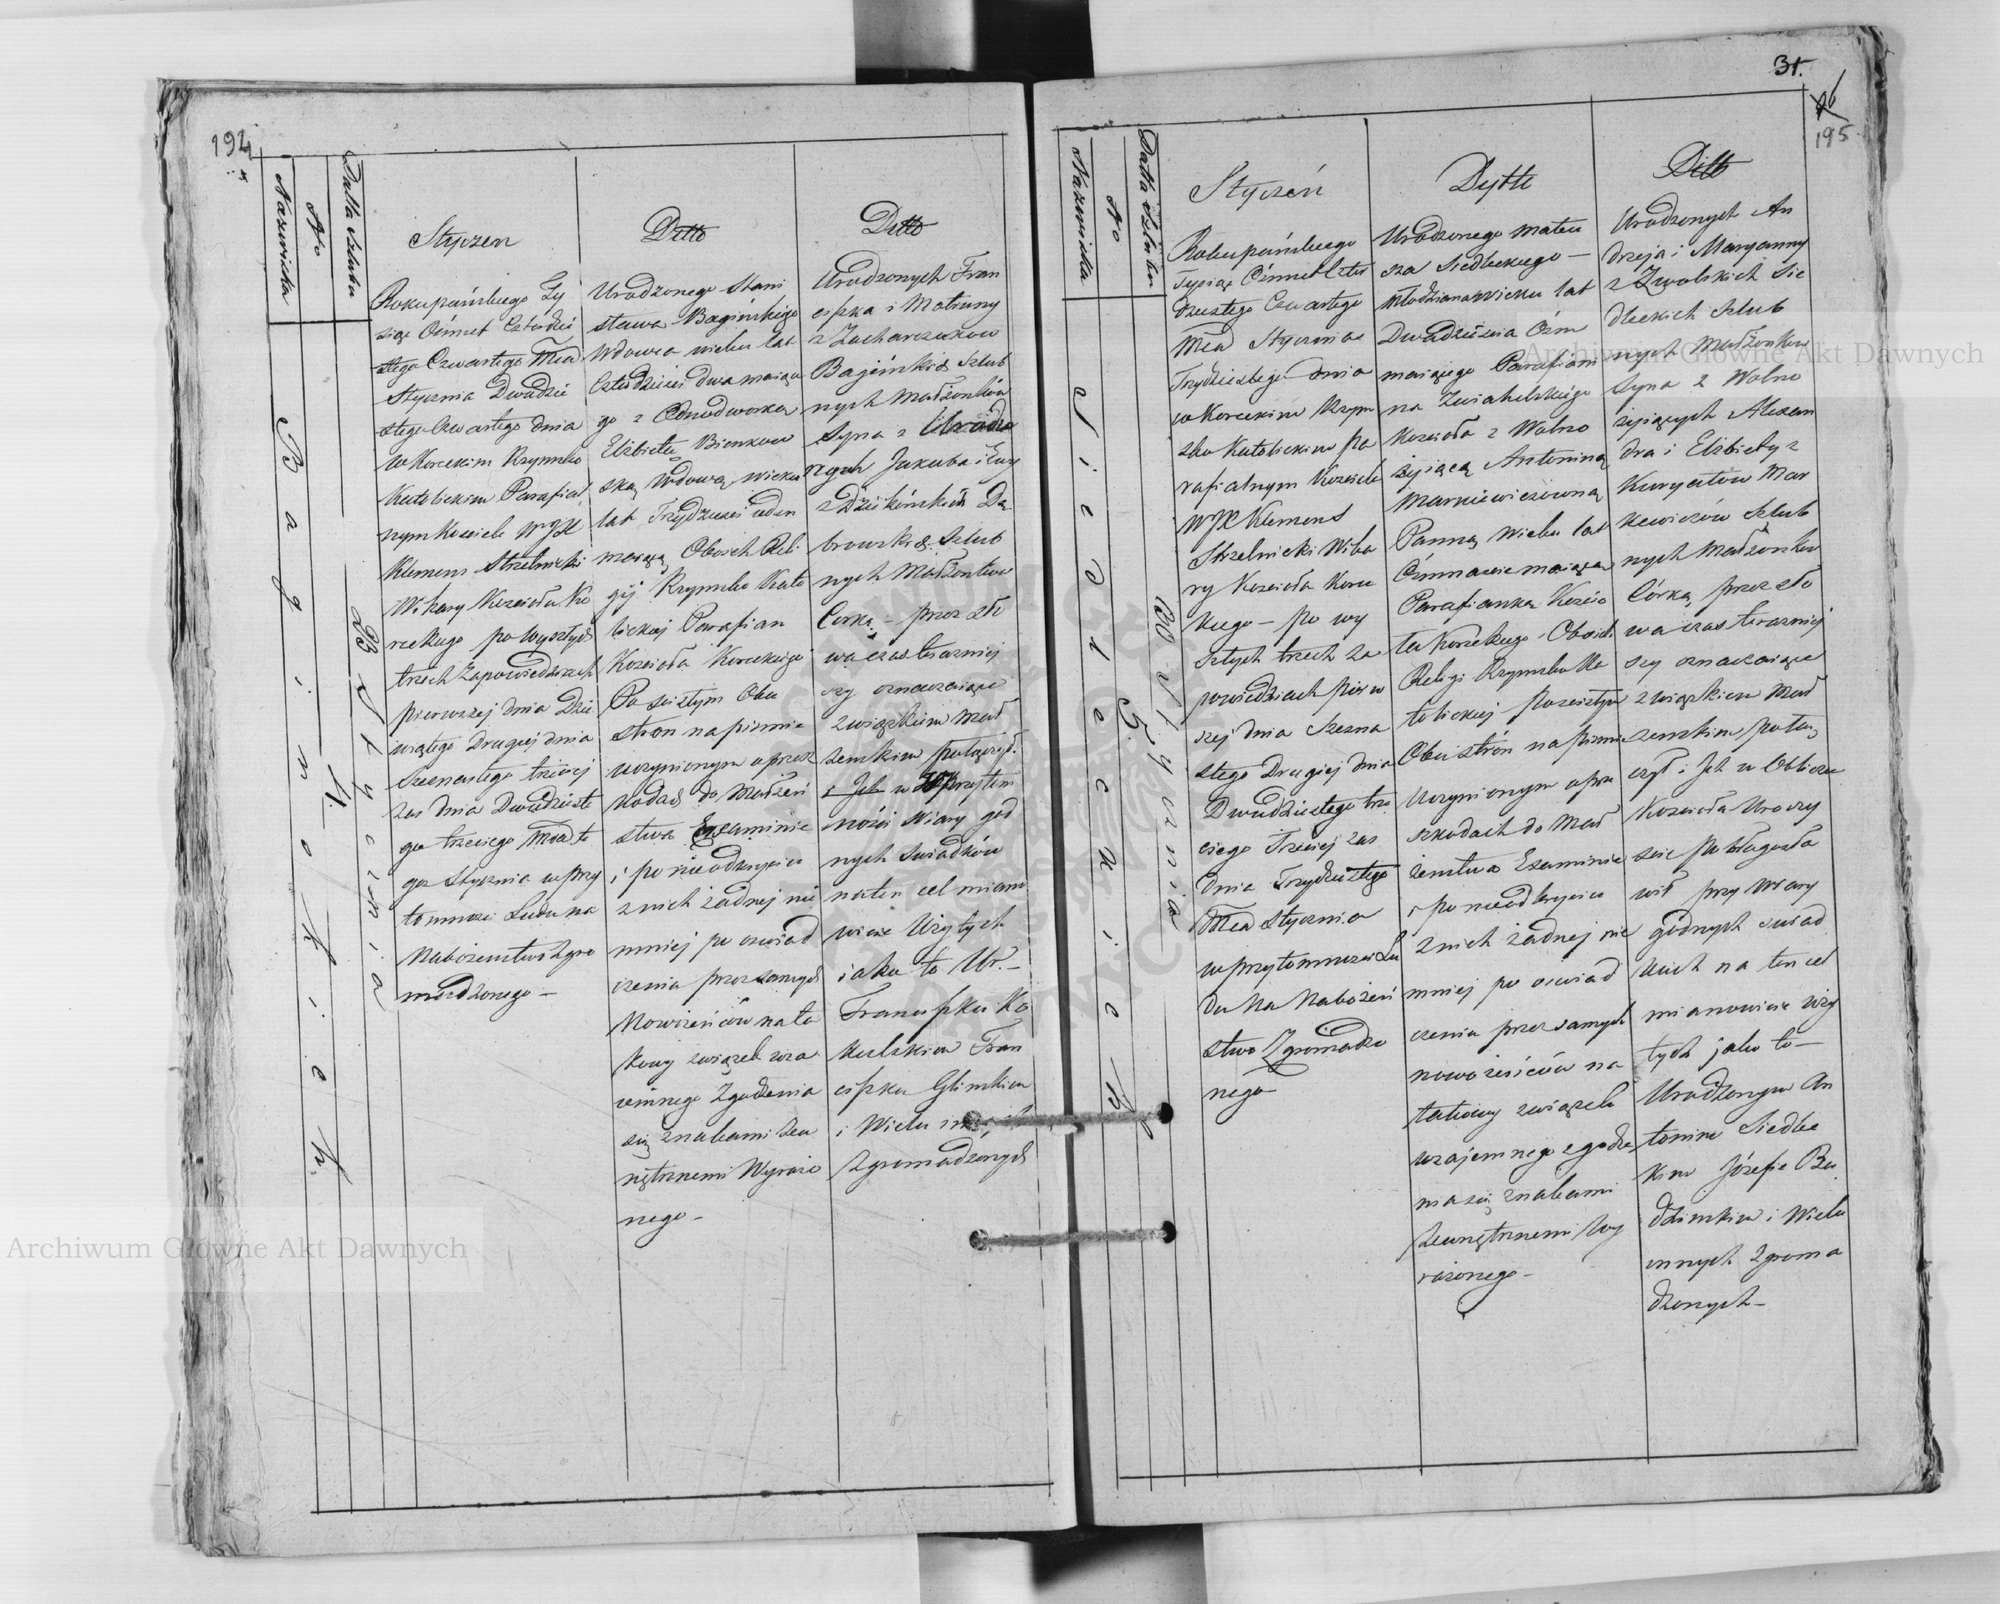 194
Datta szlubu
No
Nazwiska
23 Stycznia
4.
Baginskich.
Styczen
Roku pańskiego Ty
siąc Ośmset Cztydzie
stego Czwartego Mca
Stycznia Dwudzie
stego Czwartego dnia
w Koreckim Rzymsko
Katolickim Parafial
nym Kosciele WJX
Klemens Strzelnicki
Wikary Kościoła Ko
reckiego po wyszłych
trzech Zapowiedziach
pierwszej dnia Dzie
wiątego Drugiej dnia
Szesnastego trzeciej
zas dnia Dwudzieste
go trzeciego
go Stycznia w przy
tomnosci Ludu na
Nabożenstwo Zgro
madzonego –
Ditto
Urodzonego Stani
sława Bagińskiego
Wdowca wieku lat
Cztydzieści dwa maiące
go z Odnodworką
Elżbietą Bienkow
ską Wdową wieku
lat Trzydzieści ieden
maiącą Oboich Reli
gij Rzymsko Kato
lickiej Parafian
Kościoła Koreckiego
Po scisłym Obu
stron na pismie
uczynionym o przesz
kodach do Małżeń
stwa Examinie
i po nieodkryciu
z nich żadnej nie
mniej po oswiad
czenia przez samych
Nowożeńców na ta
kowy związek wza
iemnego Zgodzenia
się znakami Zew
nętrznemi Wyrażo
nego –
Ditto
Urodzonych Fran
ciszka i Matrony
z Zacharczuków
Bagińskich Szlub
nych Małżonków
Syna z Urodzo
nych Jakuba i Ewy
z Dzikińskich Dą
browskich Szlub
nych Małżonków
Corką – przez sło
wa czas teraźniej
szy oznaczaiące
związkiem Mał
żenskim połączył.
w przytom
ności Wiary god
nych Swiadków
na ten cel miano
wicie Użytych
iako to Ur. –
Franciszku Ko
Fran
ciszku Glinskim
i Wielu innych
Zgromadzonych
31.
195
Datta szlubu
No
Nazwiska
30 Stycznia
5.
Siedleckich
Styczeń
Roku pańskiego
Tysiąc Ośmset Czter
dziestego Czwartego
Mca Stycznia
Trzydziestego dnia
w Koreckim Rzym
sko Katolickim pa
rafialnym Kosciele
WJX Klemens
Strzelnicki Wika
ry Kościoła Korec
kiego – po wy
szłych trzech Za
powiedziach pierw
szej dnia Szesna
stego Drugiej dnia
Dwudziestego trze
ciego Trzeciej zas
dnia Trzydziestego
Mca Stycznia
w przytomnosci Lu
du Na Nabożeń
stwo Zgromadzo
nego
Dytto
Urodzonego Mateu
sza Siedleckiego –
Młodziana wieku lat
Dwadzieścia Ośm
maiącego Parafiani
na Zwiahelskiego
Kościoła z Wolno
żyjącą Antoniną
Markiewiczówną
Panną Wieku lat
Ośmnascie maiącą
Parafianką Koscio
ła Koreckiego Oboich
Religi Rzymsko Ka
tolickiej Poscisłym
Obu stron na pismie
Uczynionym o prze
szkodach do Mał
żenstwa Examinie
i po nieodkryciu
z nich żadnej nie
mniej po oswiad
czenia przez samych
nowożeńców na
takowy związek
wzajemnego zgodze
nia się znakami
Zewnętrznemi Wy
rażonego –
Ditto
Urodzonych An
drzeja i Maryanny
z Zwolskich Sie
dleckich Szlub
nych Małżonków
Syna z Wolno
żyjących Alexan
dra i Elżbiety z
Kuryatów Mar
kewiczów Szlub
nych Małżonków
Córką, przez sło
wa czas terazniej
szy oznaczaiące
związkiem Mał
żenskim połą
czył i Jch w Obliczu
Kościoła Uroczy
scie pobłogosła
wił przy Wiary
godnych swiad
kach na ten cel
mianowicie uży
tych jako to –
Urodzonym An
tonim Siedlec
kim Józefie Bu
dzinskim i Wielu
innych Zgroma
dzonych –
Archiwum Główne Akt Dawnych
Archiwum Główne Akt Dawnych